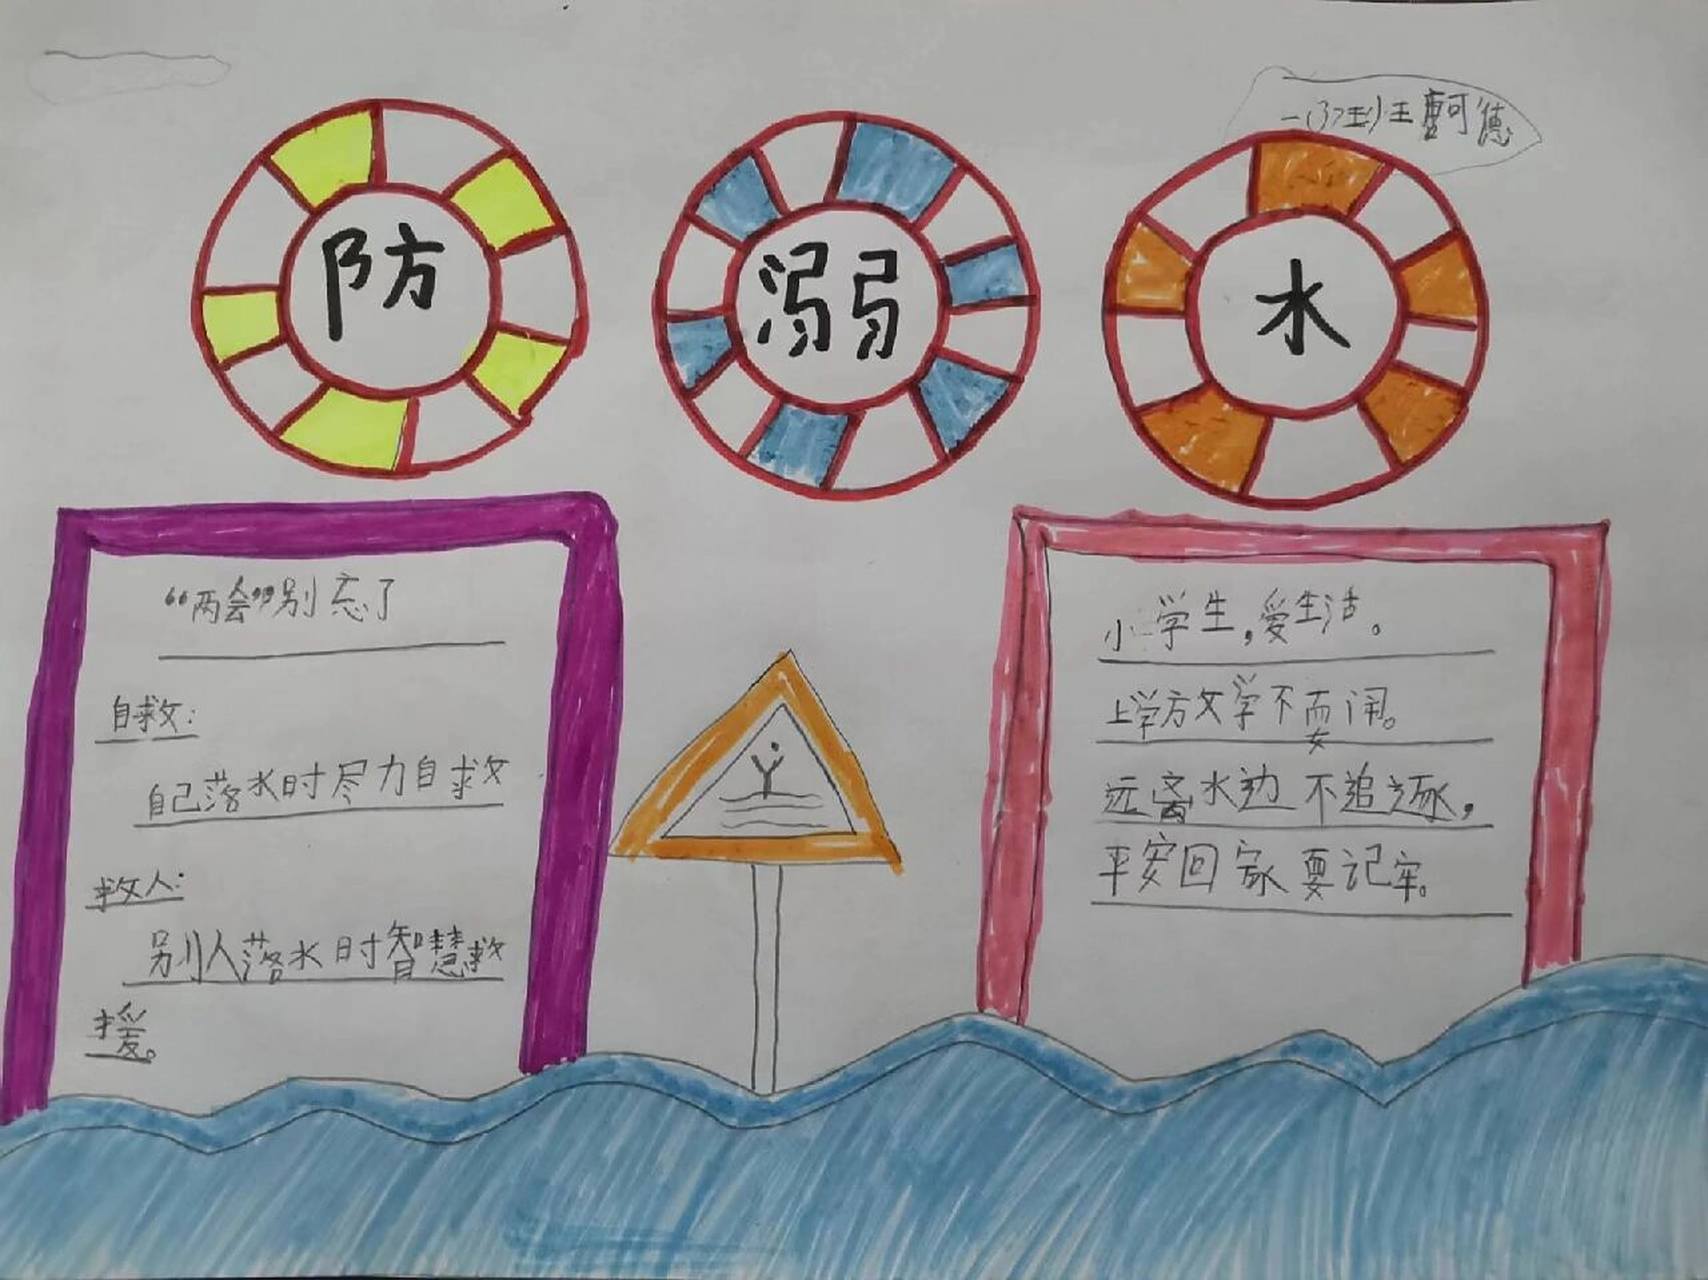 防 溺 水
一(3)班 王 可德
“两会”别忘了
自救:
自己落水时尽力自救
救人:
别人落水时智慧救
援。
小学生,爱生活。
上学方文学不要闹。
远离水边不追逐,
平安回家要记牢。